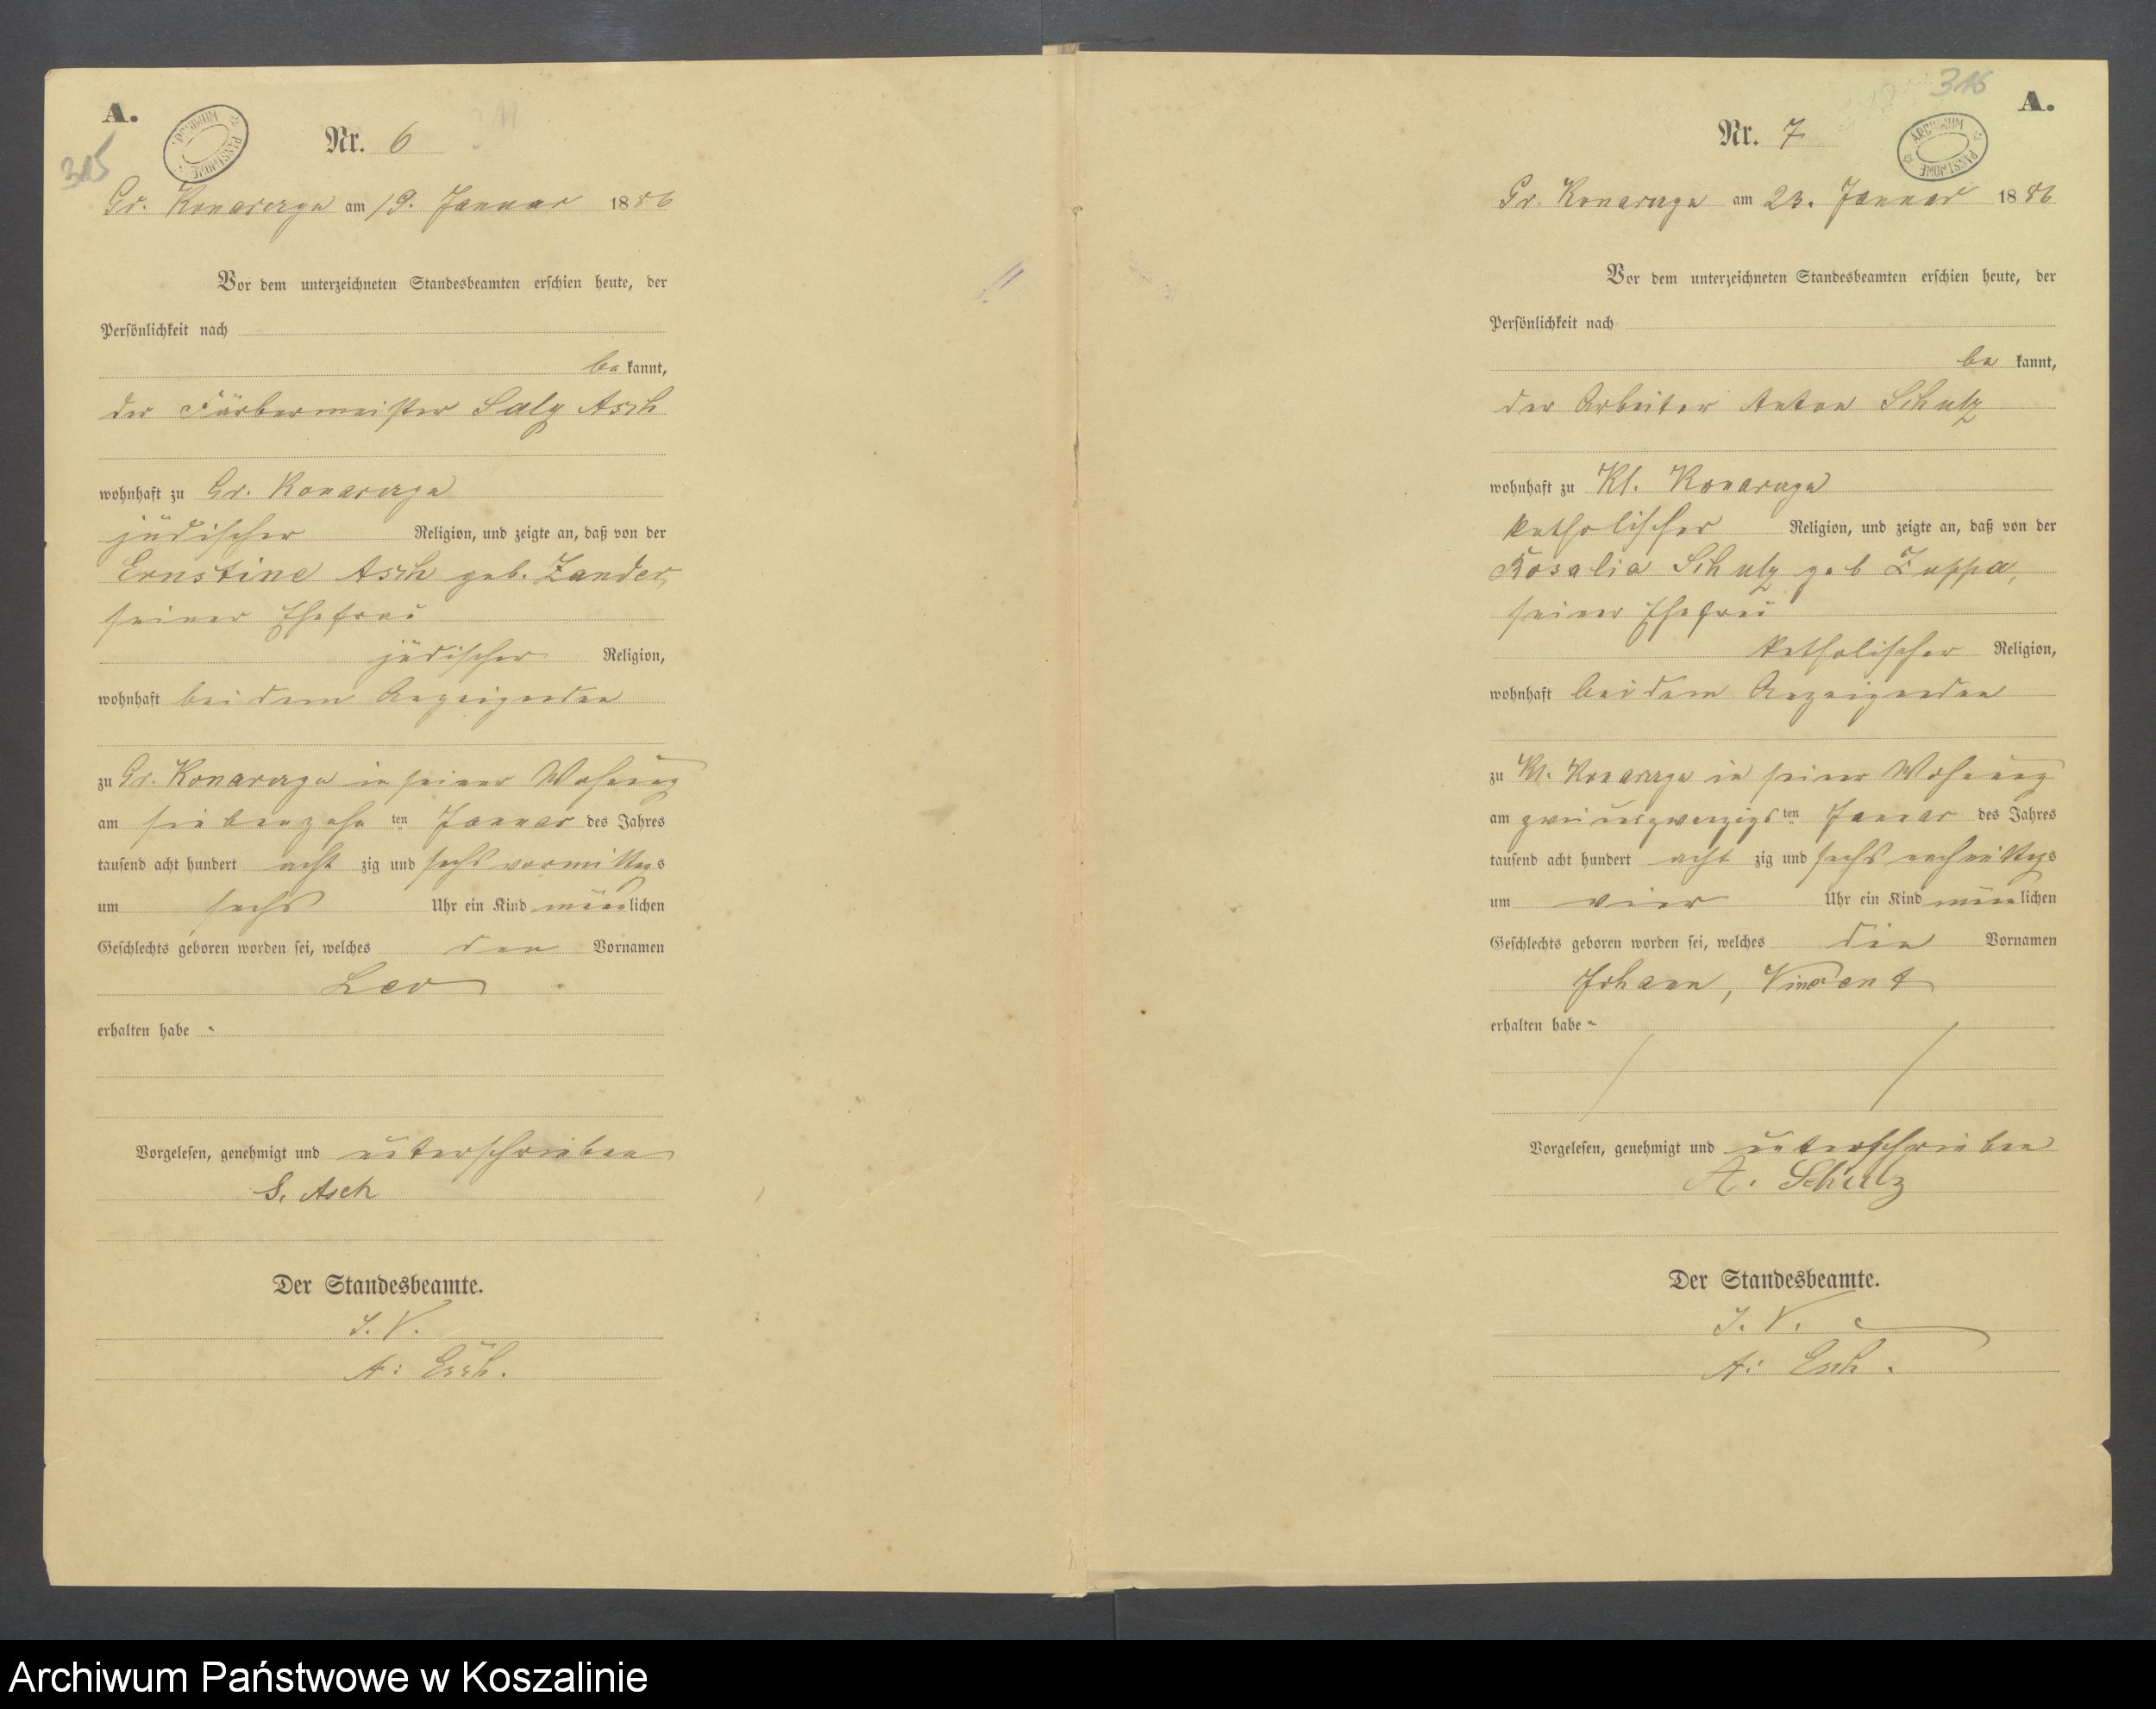 A.
315
ARCHIWUM PAŃSTWOWE
Nr. 6
Gr. Konarczyn am 19. Januar 1886
Vor dem unterzeichneten Standesbeamten erschien heute, der
Persönlichkeit nach
be kannt,
der Färbermeister Saly Asch
wohnhaft zu Gr. Konarczyn
jüdischer Religion, und zeigte an, daß von der
Ernstine Asch geb. Zander,
seiner Ehefrau
jüdischer Religion,
wohnhaft bei dem Anzeigenden
zu Gr. Konarczyn in seiner Wohnung
am siebenzehn ten Januar des Jahres
tausend acht hundert acht zig und sechs vormittags
um sechs Uhr ein Kind männlichen
Geschlechts geboren worden sei, welches den Vornamen
Leo
erhalten habe.
Vorgelesen, genehmigt und unterschrieben
S. Asch
Der Standesbeamte.
I. V.
A: Esch.
316
A.
ARCHIWUM PAŃSTWOWE
Nr. 7
Gr. Konarczyn am 23. Januar 1886
Vor dem unterzeichneten Standesbeamten erschien heute, der
Persönlichkeit nach
be kannt,
der Arbeiter Anton Schulz
wohnhaft zu Kl. Konarczyn
katholischer Religion, und zeigte an, daß von der
Rosalia Schulz geb Zuppa,
seiner Ehefrau
katholischer Religion,
wohnhaft bei dem Anzeigenden
zu Kl. Konarczyn in seiner Wohnung
am zweiundzwanzigs ten Januar des Jahres
tausend acht hundert acht zig und sechs nachmittags
um vier Uhr ein Kind männlichen
Geschlechts geboren worden sei, welches die Vornamen
Johann, Vincent
erhalten habe
Vorgelesen, genehmigt und unterschrieben
A. Schulz
Der Standesbeamte.
I. V.
A: Esch.
Archiwum Państwowe w Koszalinie